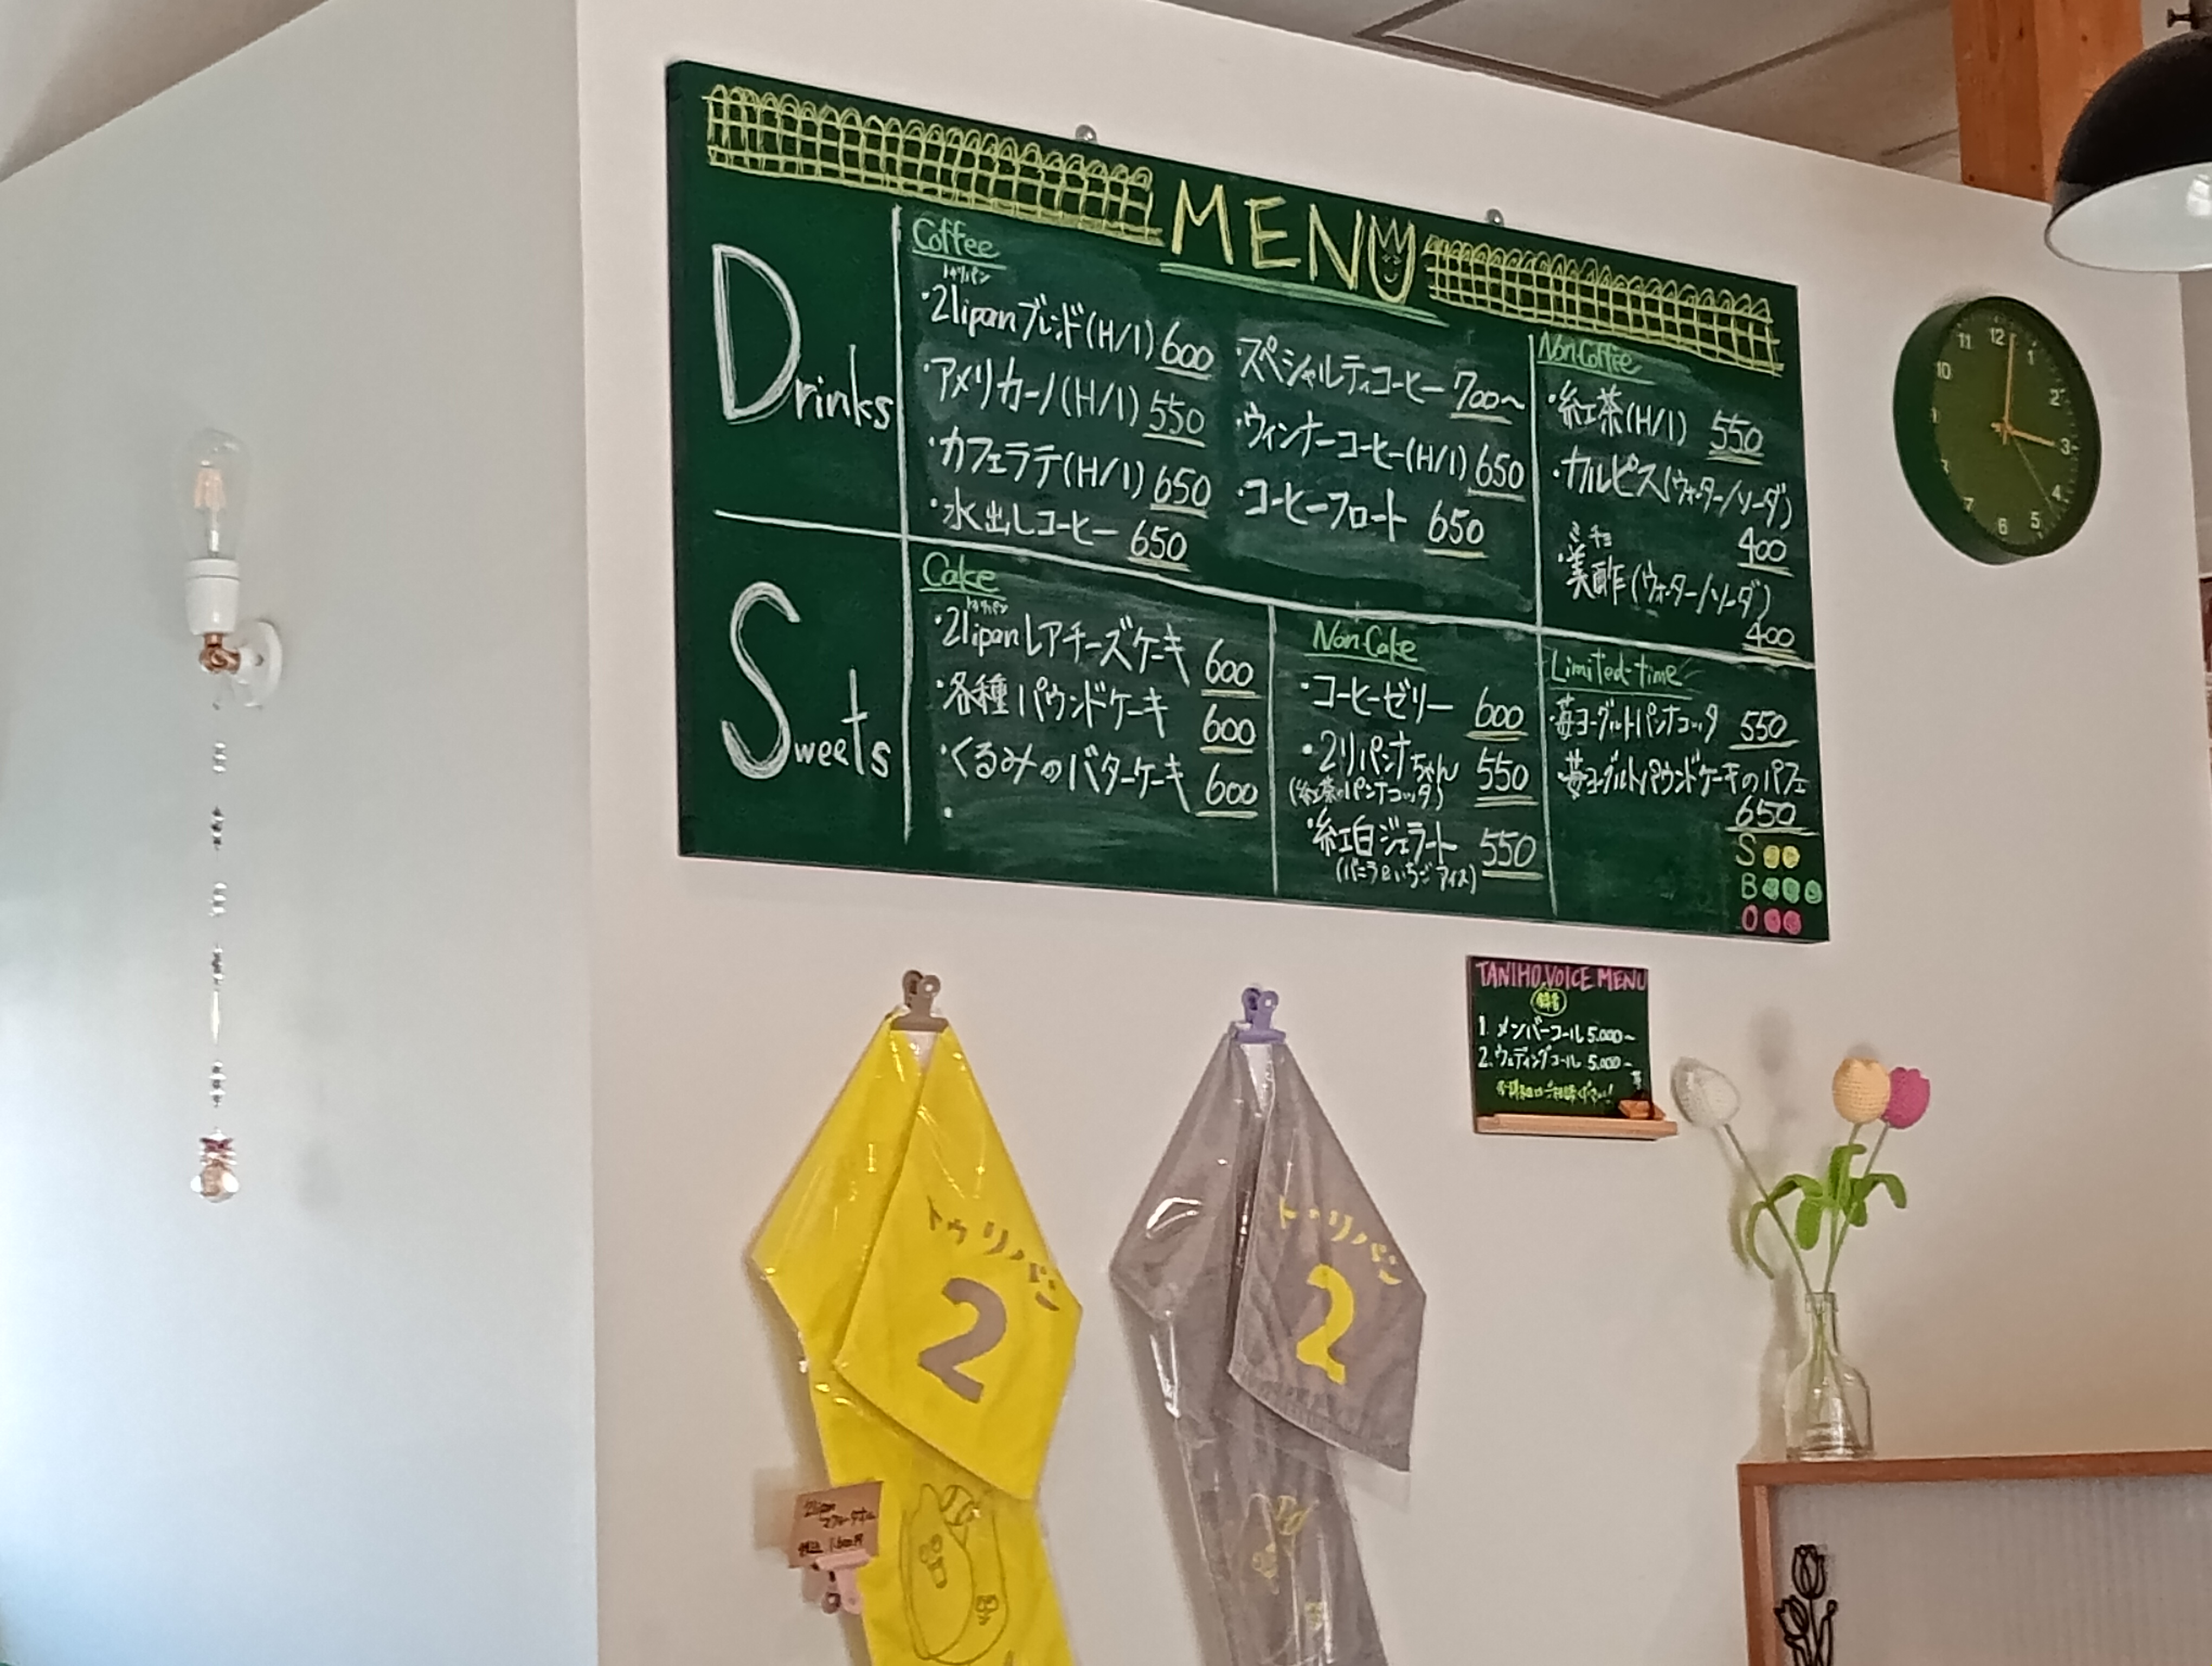 MENU
Drinks
Coffee
トゥリパン
・2lipanブレンド(H/I) 600
・アメリカーノ(H/I) 550
・カフェラテ(H/I) 650
・水出しコーヒー 650
・スペシャルティコーヒー 700〜
・ウィンナーコーヒー(H/I) 650
・コーヒーフロート 650
Non Coffee
・紅茶(H/I) 550
・カルピス(ウォーター/ソーダ)
400
ミチョ
・美酢(ウォーター/ソーダ)
400
Sweets
Cake
トゥリパン
・2lipanレアチーズケーキ 600
・各種パウンドケーキ 600
・くるみのバターケーキ 600
・
Non Cake
・コーヒーゼリー 600
・2リパンナちゃん 550
(紅茶のパンナコッタ)
・紅白ジェラート 550
(バニラ&いちごアイス)
Limited-time
・苺ヨーグルトパンナコッタ 550
・苺ヨーグルトパウンドケーキのパフェ
650
S
B
O
12
1
2
3
4
5
6
7
10
11
TANIHO.VOICE MENU
録音
1. メンバーコール 5.000〜
2. ウェディングコール 5.000〜
トゥリパン
2
トゥリパン
2
2lipan
マフラータオル
税込 1.600円